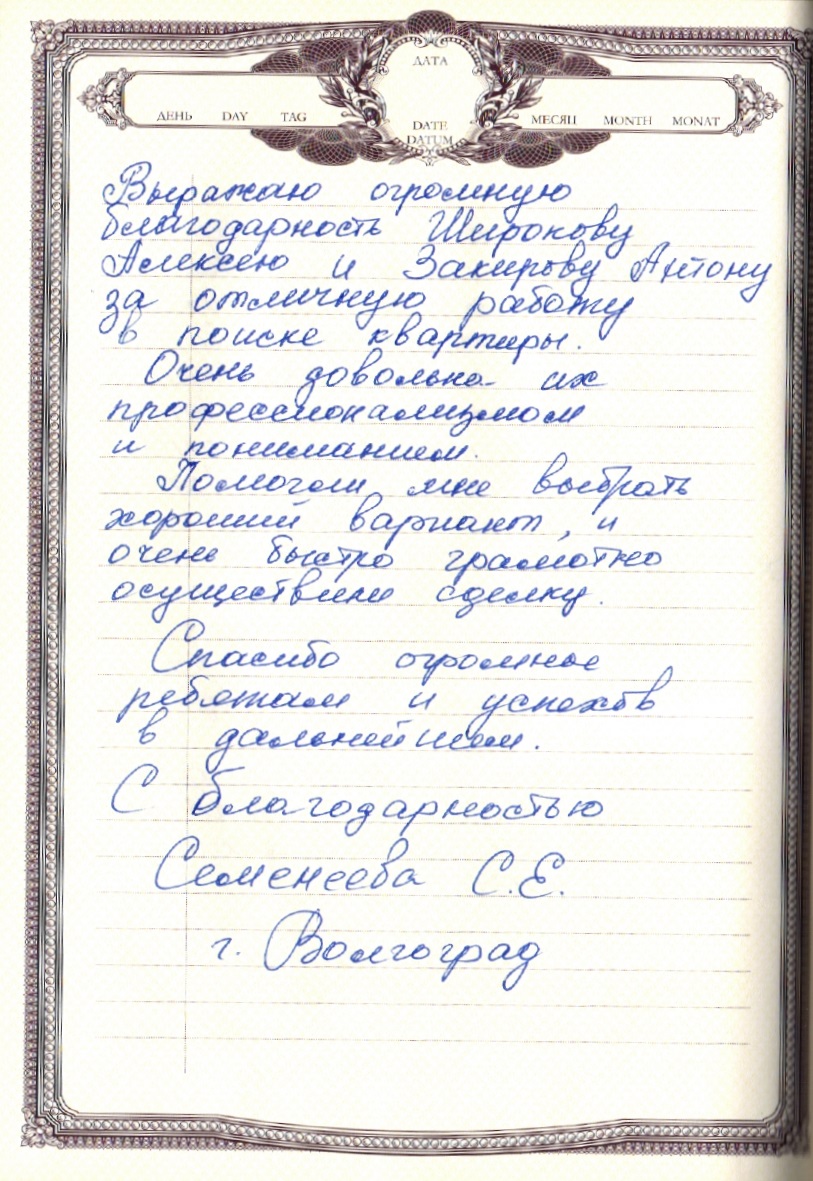 ДАТА
ДЕНЬ DAY TAG
МЕСЯЦ MONTH MONAT
DATE
DATUM
Выражаю огромную
благодарность Широкову
Алексею и Закирову Антону
за отличную работу
в поиске квартиры.
Очень довольна их
профессионализмом
и пониманием.
Помогли мне выбрать
хороший вариант, и
очень быстро грамотно
осуществили сделку.
Спасибо огромное
ребятам и успехов
в дальнейшем.
С благодарностью
Семенеева С.Е.
г. Волгоград